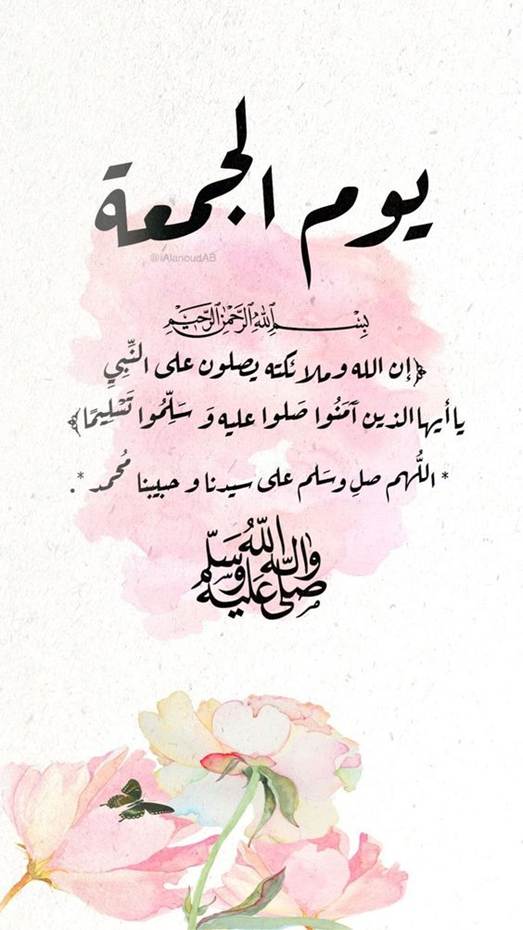 يوم الجمعة
@iAlanoudAB
بِسْمِ ٱللَّهِ ٱلرَّحْمَٰنِ ٱلرَّحِيمِ
﴿إن الله وملائكته يصلون على النَّبِيِّ
يا أيها الذين آمَنُوا صَلوا عليه وَ سَلِّمُوا تَسْلِيمًا﴾
* اللَّهم صلِ وسَلم على سيدنا و حبيبنا مُحمد * .
صلى الله عليه وآله وسلم